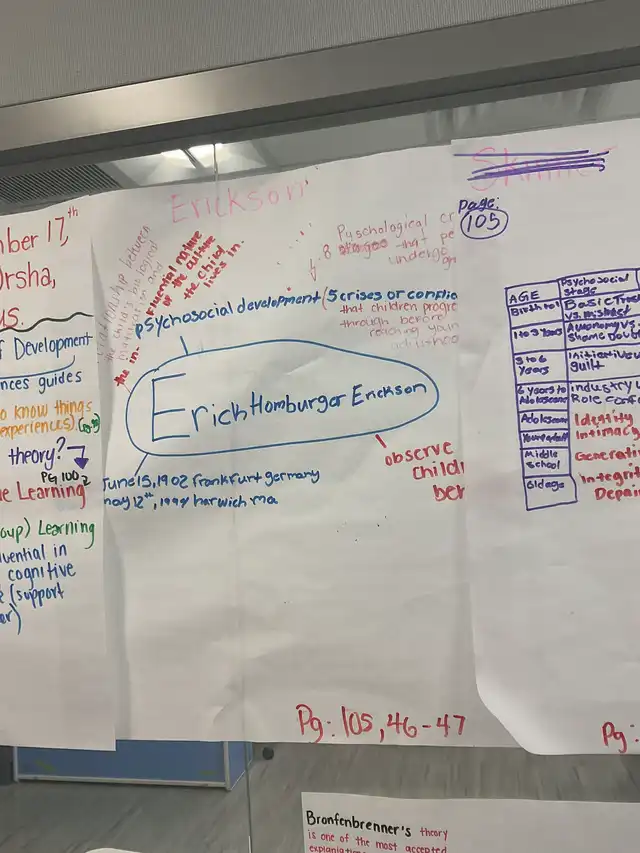 ber 17,th
Orsha,
us.
f Development
nces guides
o know things
experiences)
theory?
PG 100
e Learning
oup) Learning
uential in
cognitive
(support
or)
Erickson
relationship between
the child's biological
the in-
fluential nature
of the culture
the child
lives in.
Pyschological cr
8 stages that pe
undergo
psychosocial development (5 crises or conflic
that children progre
through before
reaching youn
Erich Homburger Erickson
June 15, 1902 Frankfurt germany
may 12th, 1994 harwich ma
observe
Childr
ber
Pg: 105, 46-47
Skinner
Page:
105
AGE
Psychosocial stage
Birth to 1
Basic Trus
vs. mistrust
1 to 3 Years
Autonomy vs.
Shame Doub
3 to 6 Years
Initiative vs
guilt
6 years to Adolescence
Industry v
Role Conf
Adolescence
Identity
Young adult
Intimacy
Middle school
Generati
Old age
Integrit
Depair
Pg:
Bronfenbrenner's theory
is one of the most accepted